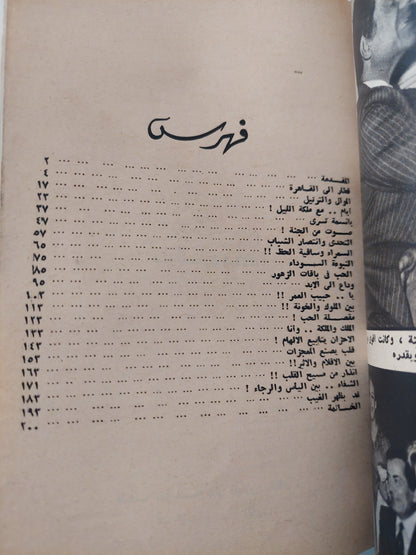 فهرست
المقدمة ... ... ... ... ... ... ... ... ٢
قطار الى القاهرة ... ... ... ... ... ... ٤
الموال والترتيل ... ... ... ... ... ... ١٧
أيام .. مع ملكة الليل ! ... ... ... ... ٢٣
يانسمة ترى ... ... ... ... ... ... ٣٧
صوت من الجنة ! ... ... ... ... ... ٤٧
التحدى وانتصار الشباب ... ... ... ... ٥٧
السمراء وساقية الحظ !! ... ... ... ... ٦٥
النبوءة السوداء ... ... ... ... ... ... ٧٥
الحب فى باقات الزهور ... ... ... ... ٨٥
وداع الى الابد ... ... ... ... ... ... ٩٥
يا .. حبيب العمر !! ... ... ... ... ... ١٠٣
بين الملوك والخونة !! ... ... ... ... ١١٣
مقصلة الحب ! ... ... ... ... ... ... ١٢٣
الملك والملكة .. وأنا ... ... ... ... ... ١٣٣
الاحزان ينابيع الالهام ! ... ... ... ... ١٤٣
قلب يصنع المعجزات ... ... ... ... ... ١٥٣
بين الاقلام والاثير!! ... ... ... ... ... ١٦٣
انذار من مسبح القلب !! ... ... ... ... ١٧١
الشفاء .. بين اليأس والرجاء ! ... ... ... ١٨٣
قد يظهر الغيب ... ... ... ... ... ... ١٩٣
الخاتمة ... ... ... ... ... ... ... ... ٢٠٠
، وكانت
وبقدره